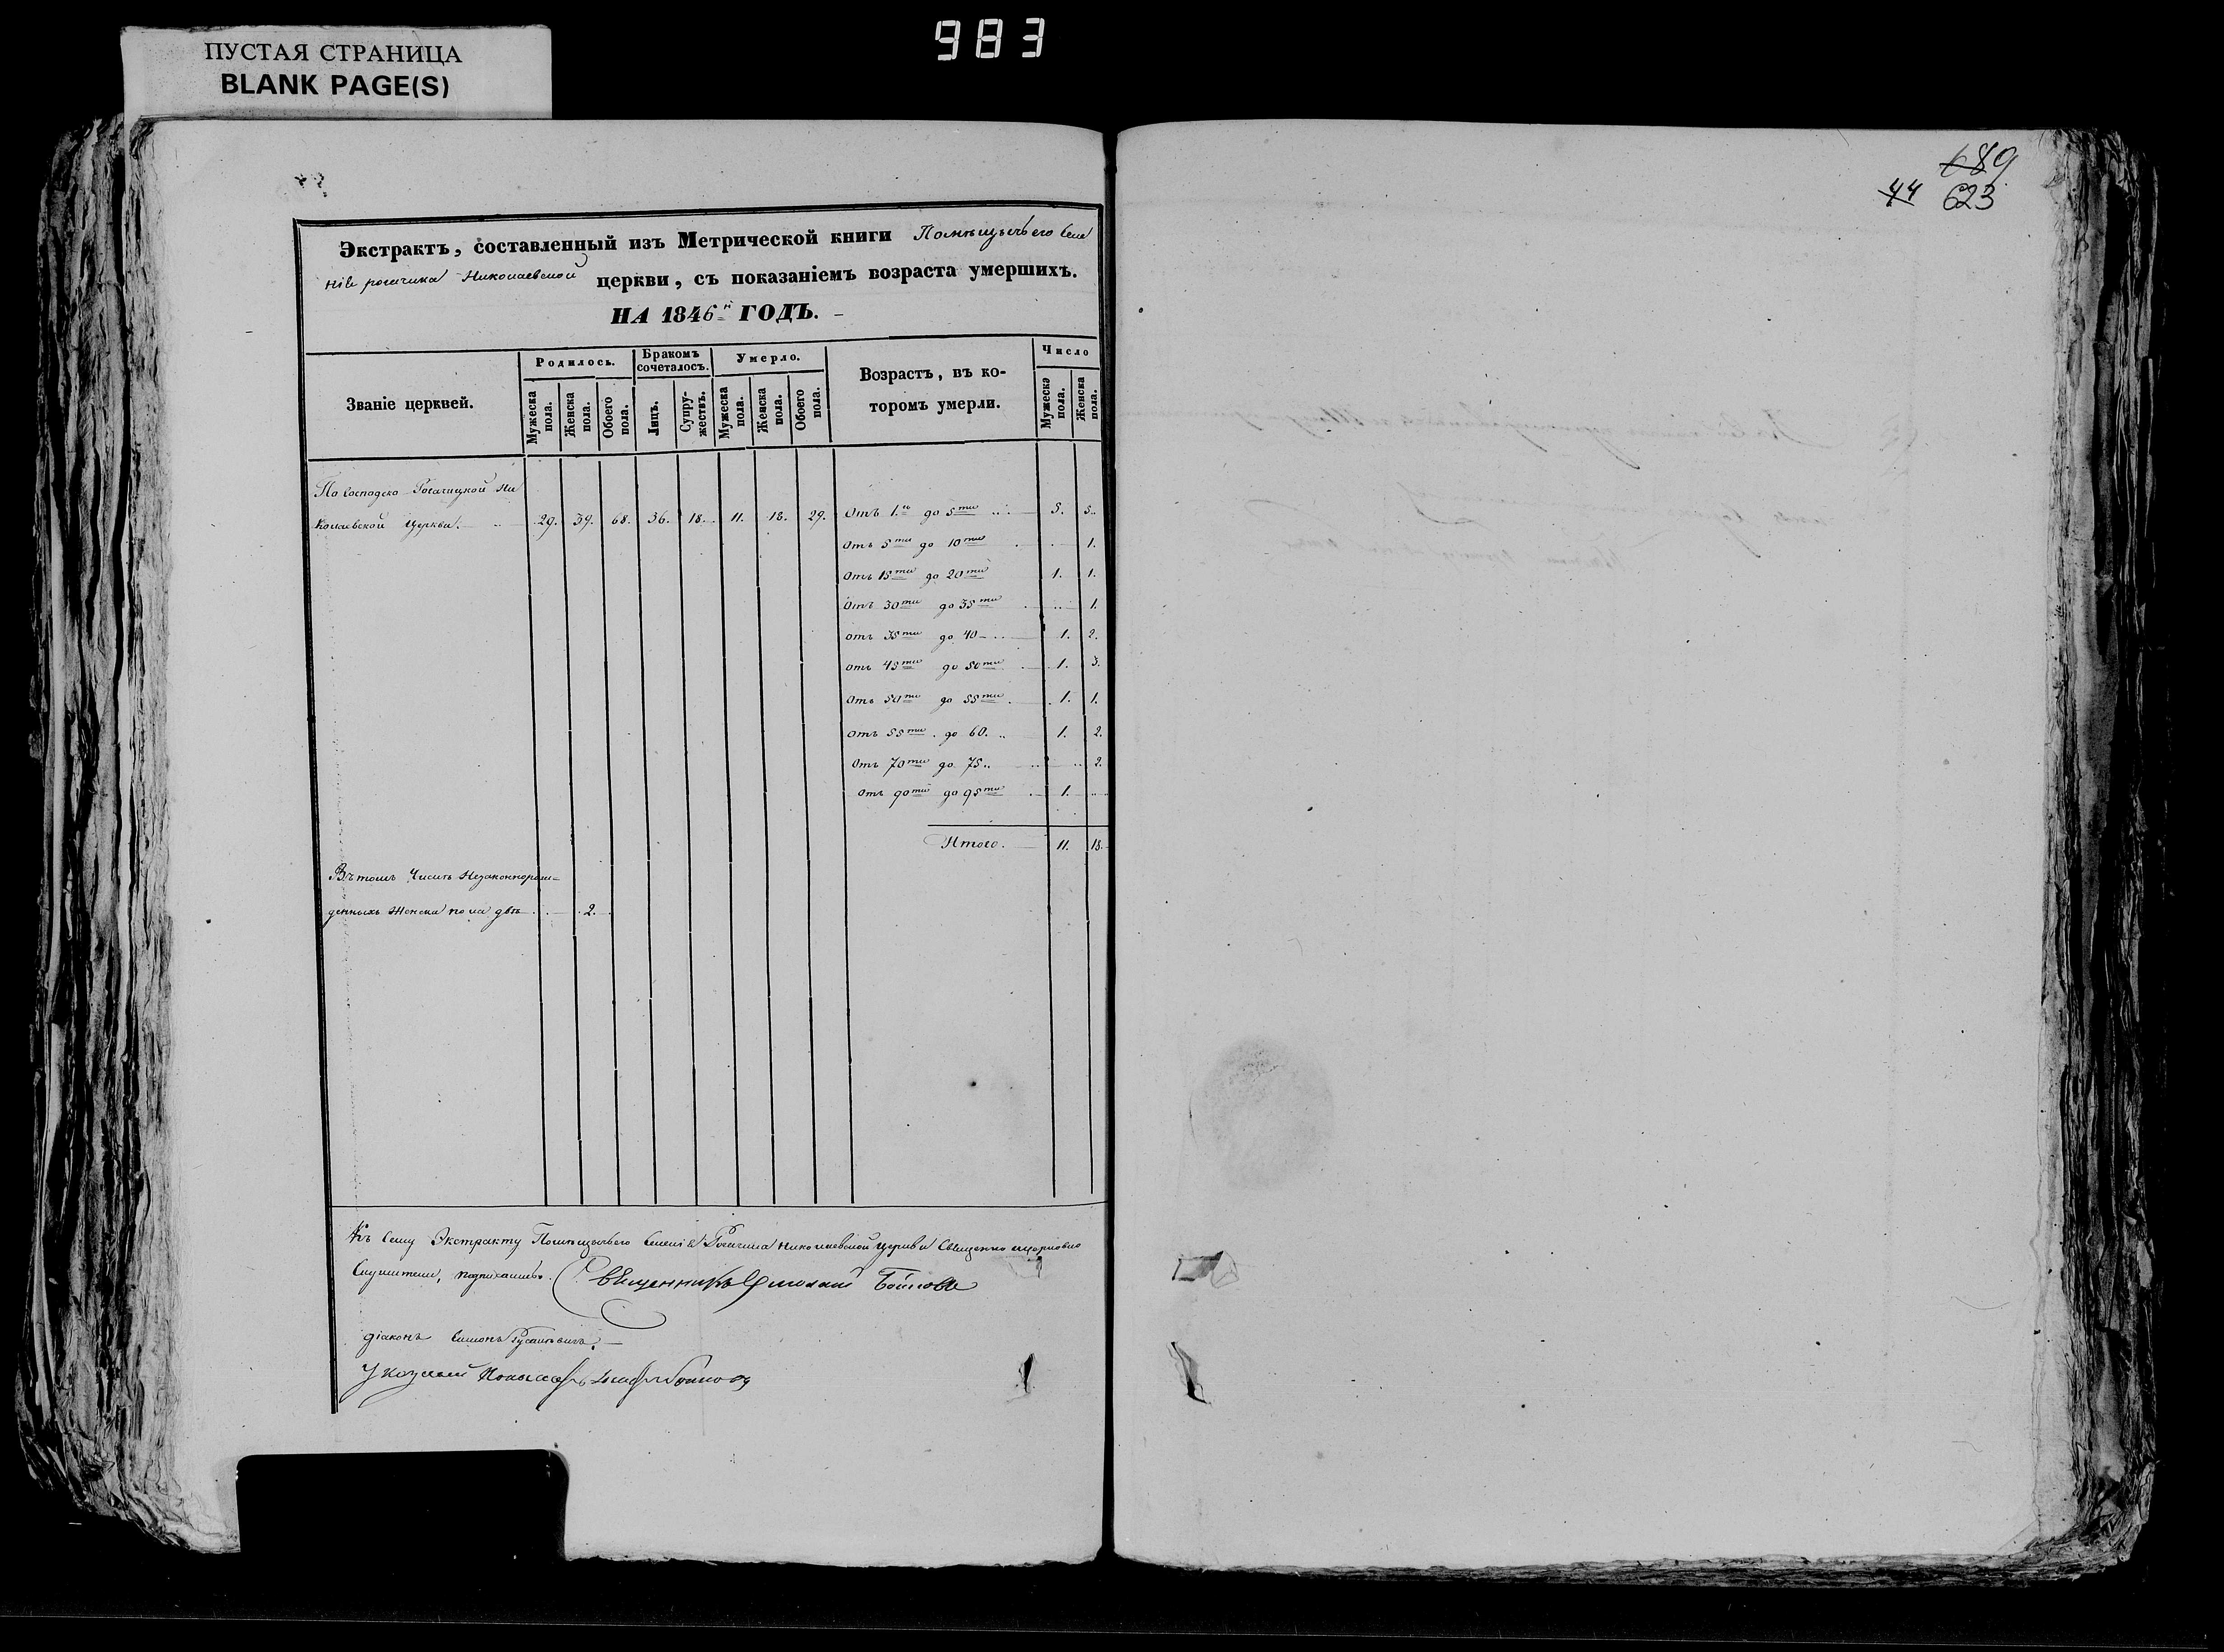 ПУСТАЯ СТРАНИЦА
BLANK PAGE(S)
983
689
44 623
Экстрактъ, составленный изъ Метрической книги Помѣщичьего Селе
нія рогачика Николаевской церкви, съ показаніемъ возраста умершихъ.
НА 1846й ГОДЪ.
Званіе церквей.
Родилось.
Мужеска пола.
Женска пола.
Обоего пола.
Бракомъ сочеталось.
Лицъ.
Супружествъ.
Умерло.
Мужеска пола.
Женска пола.
Обоего пола.
Возрастъ, въ ко-
торомъ умерли.
Число
Мужеска пола.
Женска пола.
По Господско Рогачицкой Ни
колаевской Церкви. 29. 39. 68. 36. 18. 11. 18. 29. Отъ 1го до 5ти 5. 5.
Отъ 5ти до 10ти 1.
Отъ 15ти до 20ти 1. 1.
Отъ 30ти до 35ти 1.
отъ 35ти до 40 1. 2.
отъ 45ти до 50ти 1. 3.
Отъ 50ти до 55ти 1. 1.
Отъ 55ти до 60. 1. 2.
Отъ 70ти до 75 2.
Отъ 90ти до 95ти 1.
Итого. 11. 18.
Въ томъ Числѣ Незаконнорож-
денныхъ Женска пола двѣ 2.
Къ Сему Экстракту Помѣщичьего Селенія Рогачика Николаевской Церкви Священно церковно
Служители, подписались. Священникъ Бойковъ
Діаконъ Симонъ